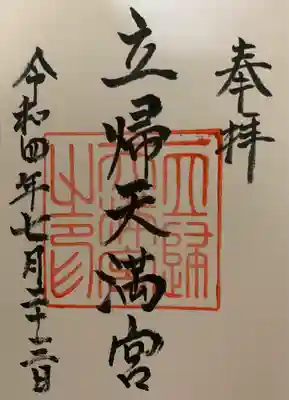 奉拝
立帰天満宮
令和四年七月二十三日